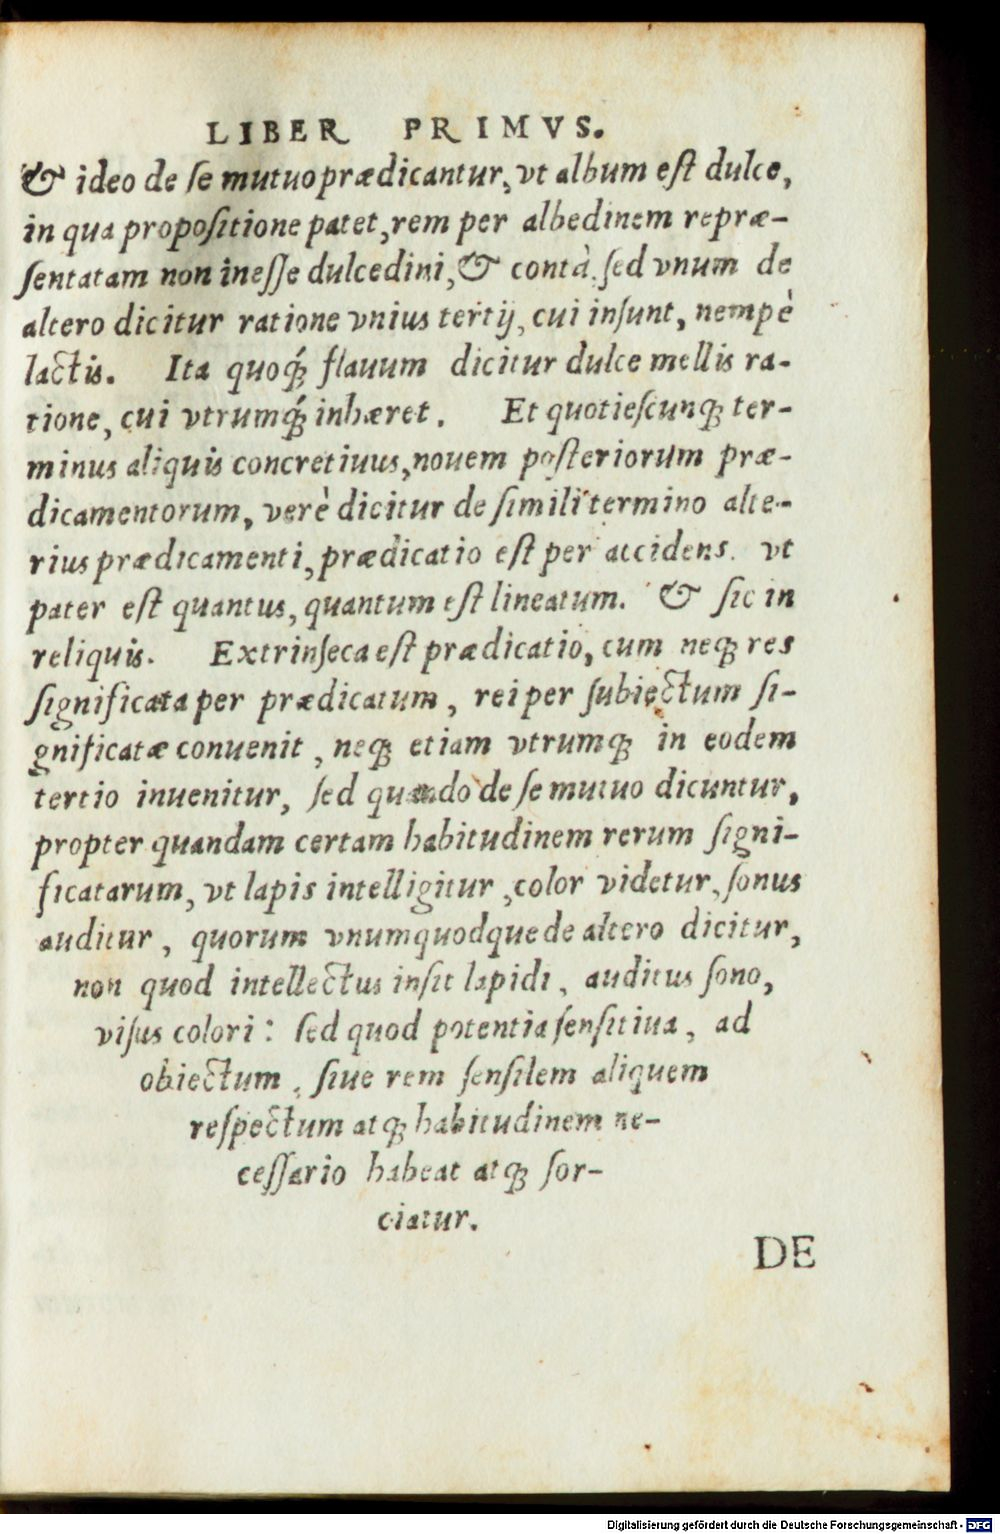 LIBER PRIMVS.
& ideo de se mutuo prædicantur, vt album est dulce,
in qua propositione patet, rem per albedinem repræ-
sentatam non inesse dulcedini, & contà. sed vnum de
altero dicitur ratione vnius tertij, cui insunt, nempè
lactis. Ita quoq́; flauum dicitur dulce mellis ra-
tione, cui vtrumq́; inhæret. Et quotiescunq; ter-
minus aliquis concretiuus, nouem posteriorum præ-
dicamentorum, verè dicitur de simili termino alte-
rius prædicamenti, prædicatio est per accidens. vt
pater est quantus, quantum est lineatum. & sic in
reliquis. Extrinseca est prædicatio, cum neq; res
significata per prædicatum, rei per subiectum si-
gnificatæ conuenit, neq; etiam vtrumq; in eodem
tertio inuenitur, sed quando de se mutuo dicuntur,
propter quandam certam habitudinem rerum signi-
ficatarum, vt lapis intelligitur, color videtur, sonus
auditur, quorum vnumquodque de altero dicitur,
non quod intellectus insit lapidi, auditus sono,
visus colori: sed quod potentia sensitiua, ad
obiectum, siue rem sensilem aliquem
respectum atq; habitudinem ne-
cessario habeat atq; sor-
ciatur.
DE
Digitalisierung gefördert durch die Deutsche Forschungsgemeinschaft - DFG